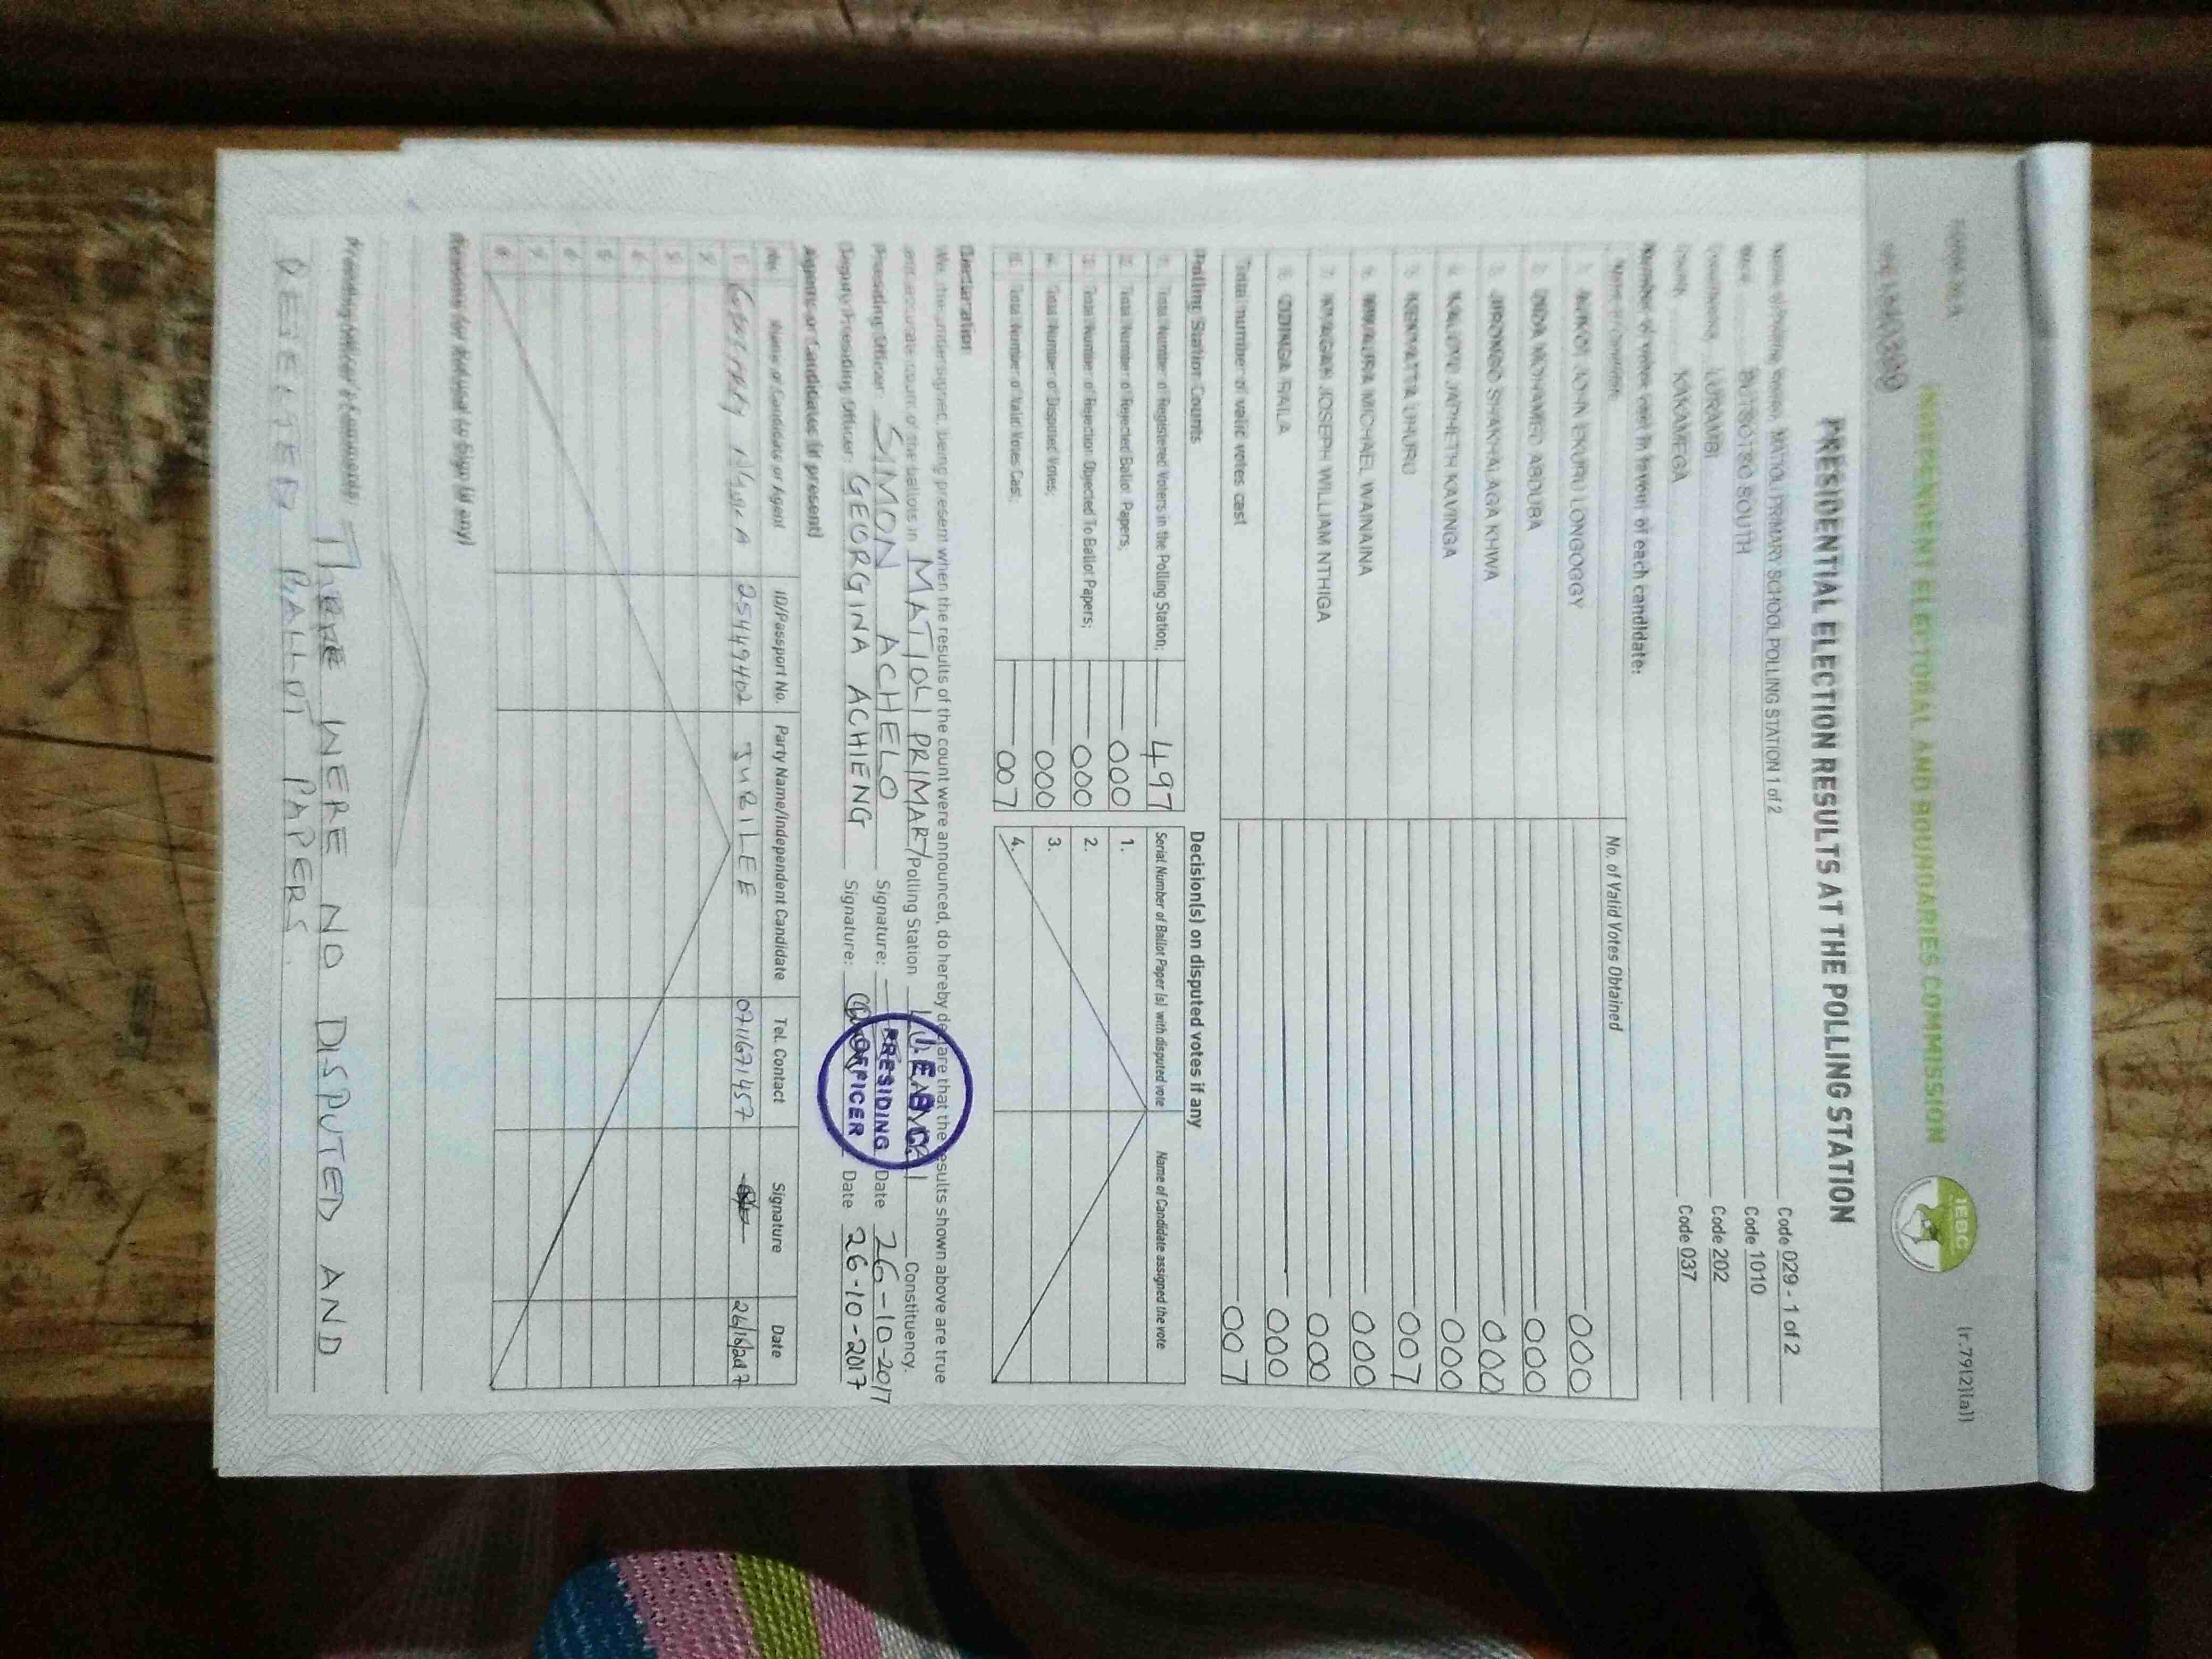 FORM 34A (r.79(2)(a))
INDEPENDENT ELECTORAL AND BOUNDARIES COMMISSION
IEBC
PRESIDENTIAL ELECTION RESULTS AT THE POLLING STATION
Name of Polling Station MATIOLI PRIMARY SCHOOL POLLING STATION 1 of 2 Code 029 - 1 of 2
Ward BUTSOTSO SOUTH Code 1010
Constituency LURAMBI Code 202
County KAKAMEGA Code 037
Number of votes cast in favour of each candidate:
Name of Candidate No. of Valid Votes Obtained
1. AUKOT JOHN EKURU LONGOGGY 000
2. DIDA MOHAMED ABDUBA 000
3. JIRONGO SHAKHALAGA KHWA 000
4. KALUYU JAPHETH KAVINGA 000
5. KENYATTA UHURU 007
6. MWAURA MICHAEL WAINAINA 000
7. NYAGAH JOSEPH WILLIAM NTHIGA 000
8. ODINGA RAILA 000
Total number of valid votes cast 007
Polling Station Counts
1. Total Number of Registered Voters in the Polling Station; 497
2. Total Number of Rejected Ballot Papers; 000
3. Total Number of Rejection Objected To Ballot Papers; 000
4. Total Number of Disputed Votes; 000
5. Total Number of Valid Votes Cast; 007
Decision(s) on disputed votes if any
Serial Number of Ballot Paper (s) with disputed vote Name of Candidate assigned the vote
1.
2.
3.
4.
Declaration
We, the undersigned, being present when the results of the count were announced, do hereby declare that the results shown above are true
and accurate count of the ballots in MATIOLI PRIMARY Polling Station LURAMBI Constituency.
Presiding Officer: SIMON ACHELO Signature: Date 26-10-2017
Deputy Presiding Officer: GEORGINA ACHIENG Signature: Date 26-10-2017
I.E.B.C
PRESIDING
OFFICER
Agents or Candidates (if present)
No. Name of Candidate or Agent ID/Passport No. Party Name/Independent Candidate Tel. Contact Signature Date
1. 25449402 JUBILEE 0711671457 26/10/2017
2
Reasons for Refusal to Sign (if any)
Presiding Officer's Comments: THERE WERE NO DISPUTED AND
REJECTED BALLOT PAPERS.